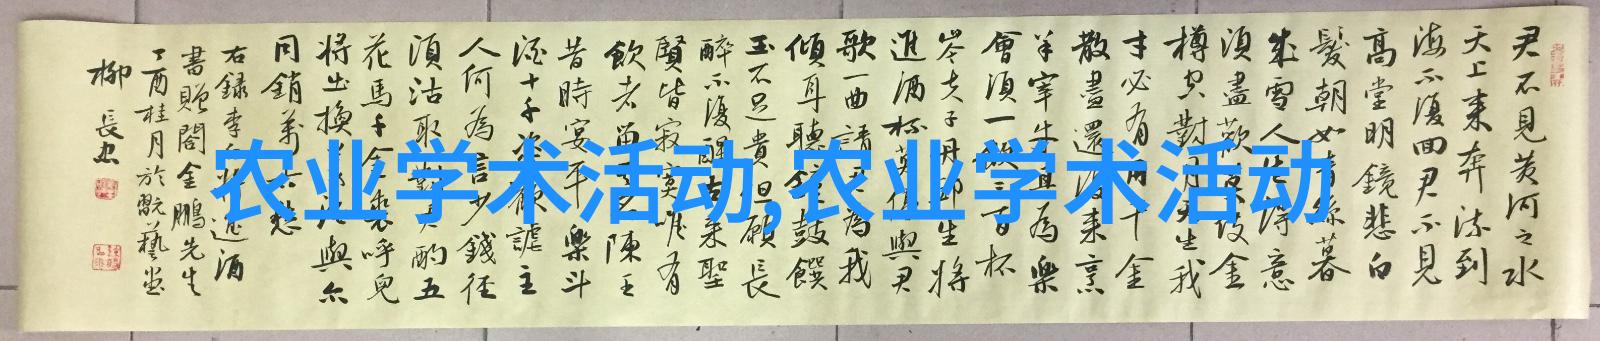 君不見黃河之水
天上來奔流到
海不復回君不見
高堂明鏡悲白
髮朝如青絲暮
成雪人生得意
須盡歡莫使金
樽空對月天生我
才必有用千金
散盡還復來烹
羊宰牛且為樂
會須一飲三百杯
岑夫子丹邱生將
進酒杯莫停與君
歌一曲請君為我
傾耳聽鐘鼓饌
玉不足貴但願長
醉不復醒古來聖
賢皆寂寞唯有
飲者留其名陳王
昔時宴平樂斗
酒十千恣歡謔主
人何為言少錢徑
須沽取對君酌五
花馬千金裘呼兒
將出換美酒與尔
同銷萬古愁
右録李白將進酒
書贈閣金鵬先生
丁酉桂月於翫藝堂
柳長忠
农业学术活动,农业学术活动